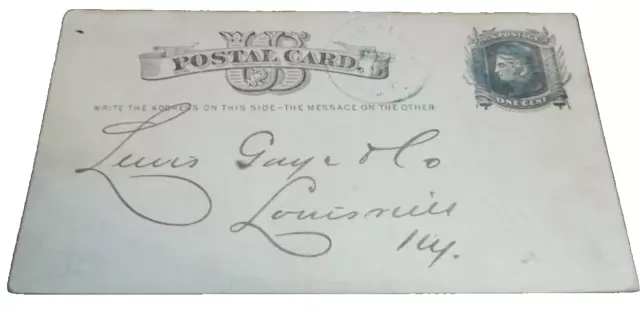 US
POSTAL CARD.
POSTAGE
ONE CENT
WRITE THE ADDRESS ON THIS SIDE-THE MESSAGE ON THE OTHER
Lewis Gaye & Co
Louisville
Ky.